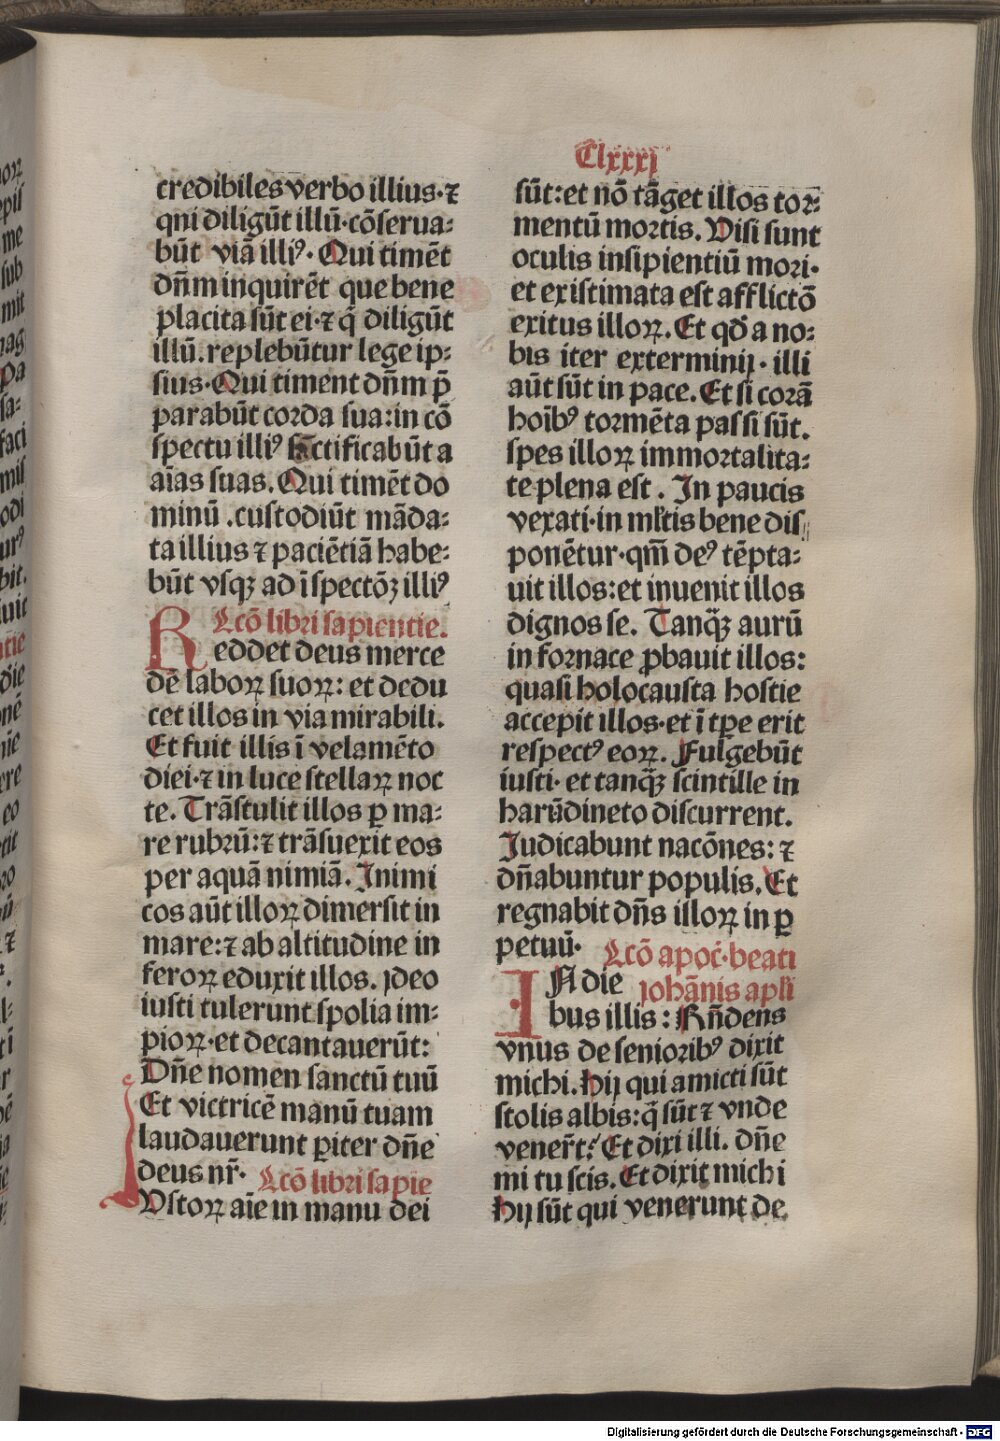 Clxxxj
credibiles verbo illius·⁊
qni diligūt illū·cōserua-
būt viā illiꝰ· Qui timēt
dn̄m inquirēt que bene
placita sūt ei·⁊ q̄ diligūt
illū.replebūtur lege ip-
sius·Qui timent dn̄m p̄
parabūt corda sua:in cō
spectu illiꝰ sc̄tificabūt a
aīas suas. Qui timēt do
minū .custodiūt māda-
ta illius ⁊ paciētiā habe-
būt vsqꝫ ad īspectōꝫ illiꝰ
Lcō libri sapientie.
Reddet deus merce
dē laboꝝ suoꝝ: et dedu
cet illos in via mirabili.
Et fuit illis ī velamēto
diei·⁊ in luce stellaꝝ noc
te. Trāstulit illos ꝑ ma-
re rubrū:⁊ trāsuexit eos
per aquā nimiā. Inimi
cos aūt illoꝝ dimersit in
mare:⁊ ab altitudine in
feroꝝ eduxit illos. Ideo
iusti tulerunt spolia im-
pioꝝ·et decantauerūt:
Dn̄e nomen sanctū tuū
Et victricē manū tuam
laudauerunt ꝑiter dn̄e
deus nr̄· Lcō libri sapie
IVstoꝝ aīe in manu dei
sūt:et nō tāget illos tor-
mentū mortis. Visi sunt
oculis insipientiū mori·
et existimata est afflictō
exitus illoꝝ. Et qd̄ a no-
bis iter exterminij· illi
aūt sūt in pace. Et si corā
hoībꝰ tormēta passi sūt.
spes illoꝝ immortalita-
te plena est . In paucis
vexati·in ml̄tis bene dis
ponētur·qm̄ deꝰ tēpta-
uit illos:et inuenit illos
dignos se. Tanq̄ꝫ aurū
in fornace ꝓbauit illos:
quasi holocausta hostie
accepit illos·et ī tꝑe erit
respectꝰ eoꝝ. Fulgebūt
iusti· et tanq̄ꝫ scintille in
harūdineto discurrent.
Judicabunt nacōnes: ⁊
dn̄abuntur populis. Et
regnabit dn̄s illoꝝ in ꝑ
petuū· Lcō apoc̄·beati
IN die Johānis apl̄i
bus illis : Rn̄dens
vnus de senioribꝰ dixit
michi. Hij qui amicti sūt
stolis albis:q̄ sūt ⁊ vnde
venerūt? Et dixi illi. dn̄e
mi tu scis. Et dixit michi
Hij sūt qui venerunt de
Digitalisierung gefördert durch die Deutsche Forschungsgemeinschaft - DFG